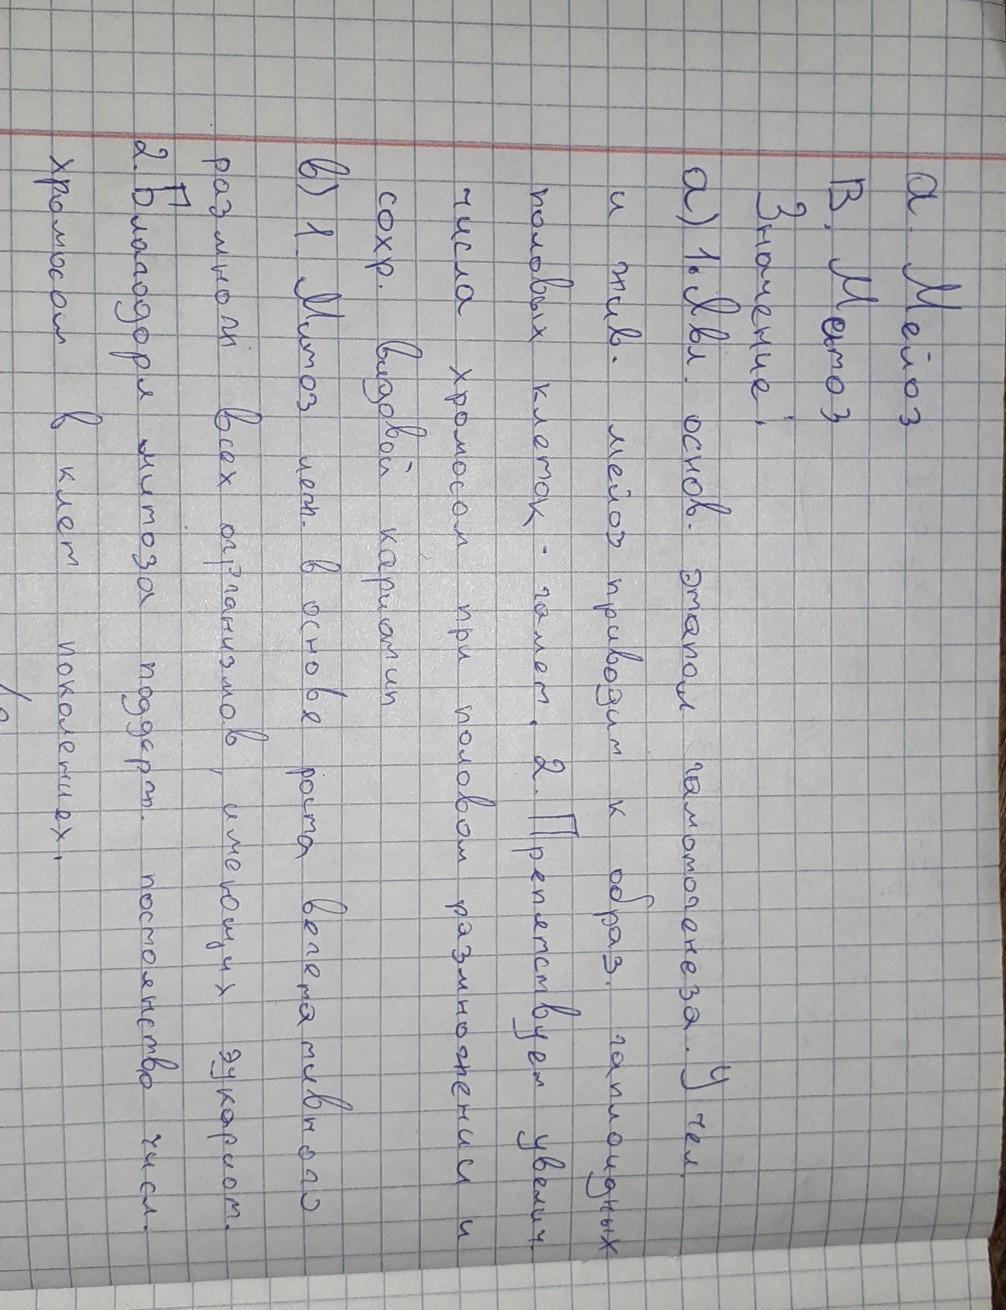 а. Мейоз
В. Митоз
Значение:
а) 1. Явл. основ. этапом гамотогенеза. У чел.
и жив. мейоз приводит к образ. гаплоидных
половых клеток - гамет. 2. Препятствует увелич.
числа хромосом при половом размножении и
сохр. видовой кариотип
в) 1. Митоз леж. в основе роста вегетативного
размнож всех огрганизмов, имеющих эукариот.
2. Благодоря митоза поддерж. постоянство числ.
хромосом в клет поколениех.